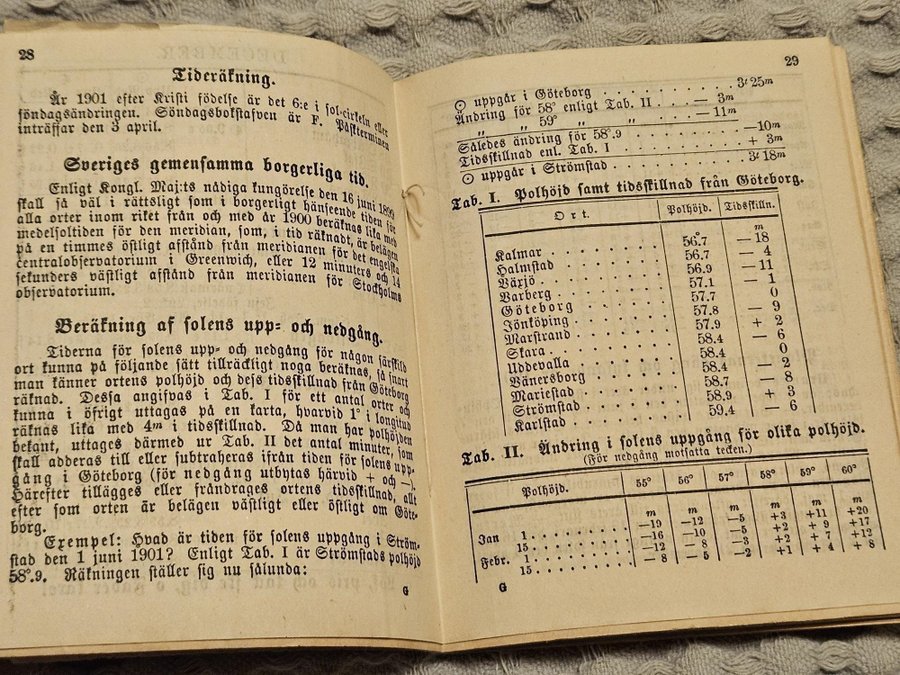 28
Tideräkning.
År 1901 efter Kristi födelse är det 6:e i sol-cirkeln eller
söndagsändringen. Söndagsbokstafven är F. Påskterminen
inträffar den 3 april.
Sveriges gemensamma borgerliga tid.
Enligt Kongl. Maj:ts nådiga kungörelse den 16 juni 1899
skall så väl i rättsligt som i borgerligt hänseende tiden för
alla orter inom riket från och med år 1900 beräknas lika med
medelsoltiden för den meridian, som, i tid räknadt, är belägen
på en timmes östligt afstånd från meridianen för det engelska
centralobservatorium i Greenwich, eller 12 minuter och 14
sekunders västligt afstånd från meridianen för Stockholms
observatorium.
Beräkning af solens upp= och nedgång.
Tiderna för solens upp- och nedgång för någon särskild
ort kunna på följande sätt tillräckligt noga beräknas, så snart
man känner ortens polhöjd och dess tidsskillnad från Göteborg
räknad. Dessa angifvas i Tab. I för ett antal orter och
kunna i öfrigt uttagas på en karta, hvarvid 1° i longitud
räknas lika med 4m i tidsskillnad. Då man har polhöjden
bekant, uttages därmed ur Tab. II det antal minuter, som
skall adderas till eller subtraheras ifrån tiden för solens upp-
gång i Göteborg (för nedgång utbytas härvid + och —).
Härefter tillägges eller fråndrages ortens tidsskillnad, allt
efter som orten är belägen västligt eller östligt om Göte-
borg.
Exempel: Hvad är tiden för solens uppgång i Ström-
stad den 1 juni 1901? Enligt Tab. I är Strömstads polhöjd
58°.9. Räkningen ställer sig nu sålunda:
G
29
☉ uppgår i Göteborg . . . . . . . . . . . . 3t 25m
Ändring för 58° enligt Tab. II . . . . — 3m
„ „ 59° „ „ . . . . —11m
Således ändring för 58°.9 . . . . . . . . —10m
Tidsskillnad enl. Tab. I . . . . . . . . . + 3m
☉ uppgår i Strömstad . . . . . . . . . . . 3t 18m
Tab. I. Polhöjd samt tidsskillnad från Göteborg.
Ort. Polhöjd. Tidsskilln.
m
Kalmar . . . . . . . . 56°.7 —18
Halmstad . . . . . . . 56.7 — 4
Växjö . . . . . . . . 56.9 —11
Varberg . . . . . . . 57.1 — 1
Göteborg . . . . . . . 57.7 0
Jönköping . . . . . . 57.8 — 9
Marstrand . . . . . . 57.9 + 2
Skara . . . . . . . . 58.4 — 6
Uddevalla . . . . . . 58.4 0
Vänersborg . . . . . . 58.4 — 2
Mariestad . . . . . . 58.7 — 8
Strömstad . . . . . . 58.9 + 3
Karlstad . . . . . . . 59.4 — 6
Tab. II. Ändring i solens uppgång för olika polhöjd.
(För nedgång motsatta tecken.)
Polhöjd. 55° 56° 57° 58° 59° 60°
m m m m m m
Jan 1 . . . . . . . . —19 —12 —5 +3 +11 +20
15 . . . . . . . . —16 —10 —5 +2 + 9 +17
Febr. 1 . . . . . . . . —12 — 8 —3 +2 + 7 +12
15 . . . . . . . . — 8 — 5 —2 +1 + 4 + 8
G